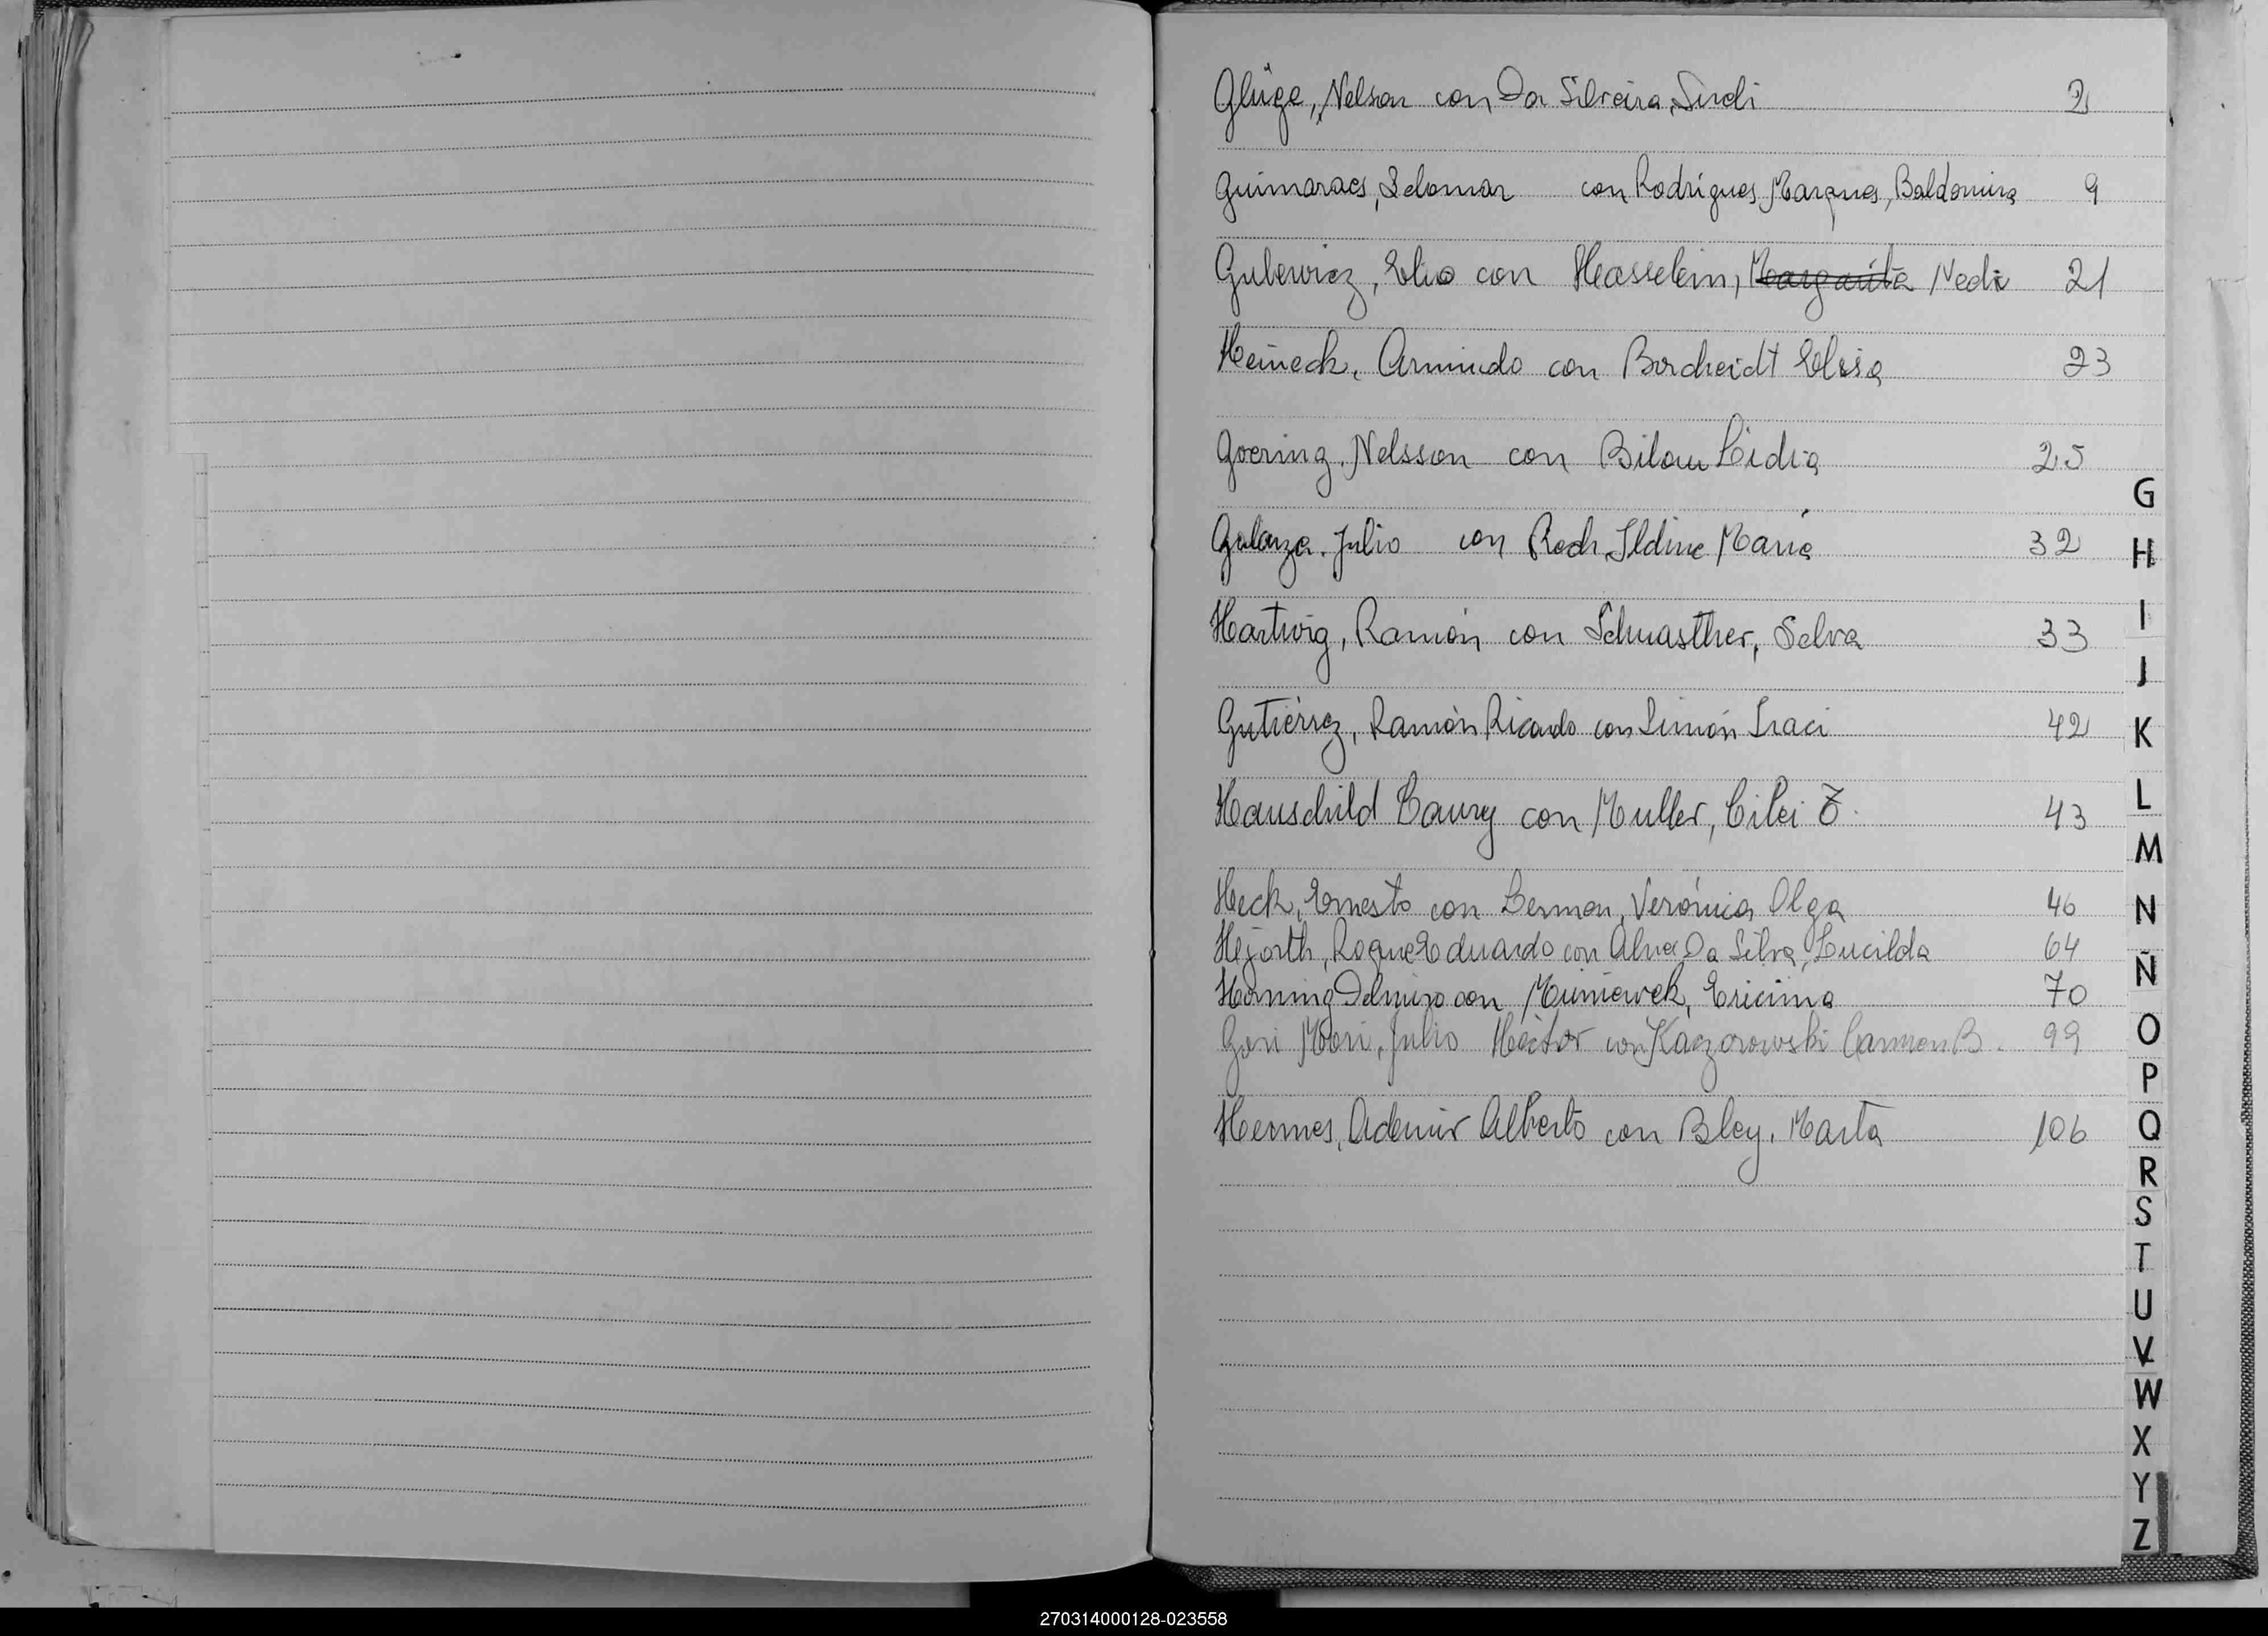 Glüge, Nelson con Da Silveira, Sirdi 2
Guimaraes, Idomar con Rodrigues Marques, Baldomira 9
Gulewicz, Elio con Hasselein, Margarita Nedi 21
Heineck, Armindo con Borcheidt Elisa 23
Goering, Nelsson con Bilau Lidia 25
Galarza. Julio con Roch Ildine María 32
Hartwig, Ramón con Schuasther, Selva 33
Gutiérrez, Ramón Ricardo con Simón Iraci 42
Hauschild Laury con Muller, Cilei Z. 43
Heck, Ernesto con Lerman, Verónica Olga 46
Hejorth, Roque Eduardo con Alves Da Silva, Lucilda 64
Horning Delmiro con Muniewek, Ericima 70
Gori Mori, Julio Héctor con Kaczorowski Carmen B. 99
Hermes, Ademir Alberto con Bley, Marta 106
G
H
I
J
K
L
M
N
Ñ
O
P
Q
R
S
T
U
V
W
X
Y
Z
270314000128-023558